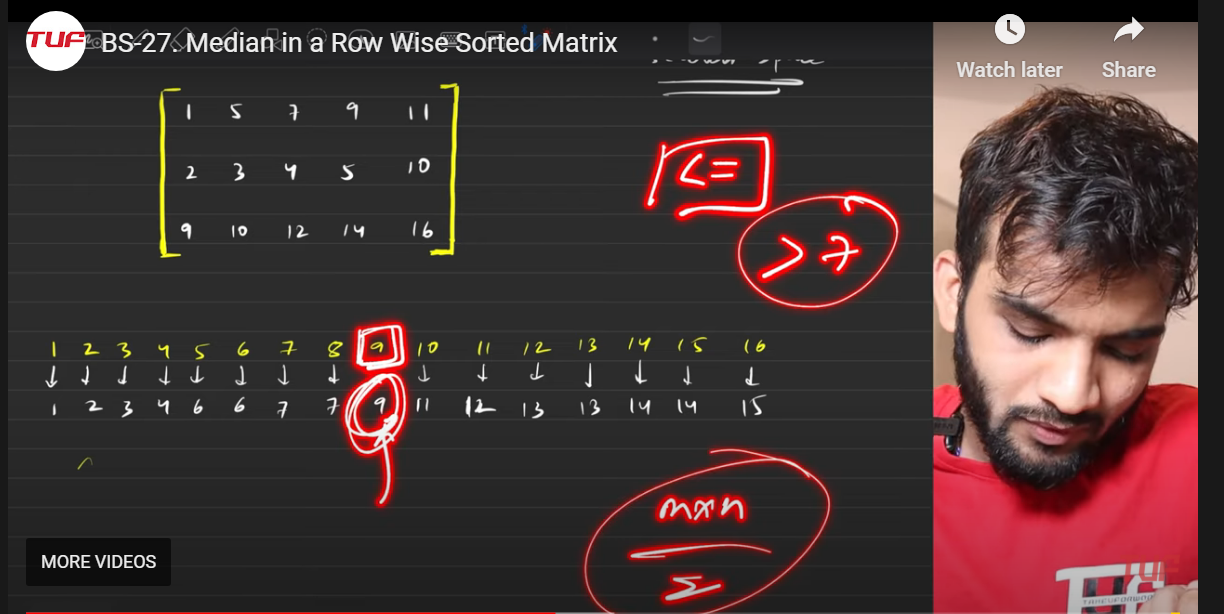 TUF BS-27. Median in a Row Wise Sorted Matrix
Watch later Share
1 5 7 9 11
2 3 4 5 10
9 10 12 14 16
<=
> 7
1 2 3 4 5 6 7 8 9 10 11 12 13 14 15 16
↓ ↓ ↓ ↓ ↓ ↓ ↓ ↓ ↓ ↓ ↓ ↓ ↓ ↓ ↓
1 2 3 4 6 6 7 7 9 11 12 13 13 14 14 15
m×n
2
MORE VIDEOS
TUF